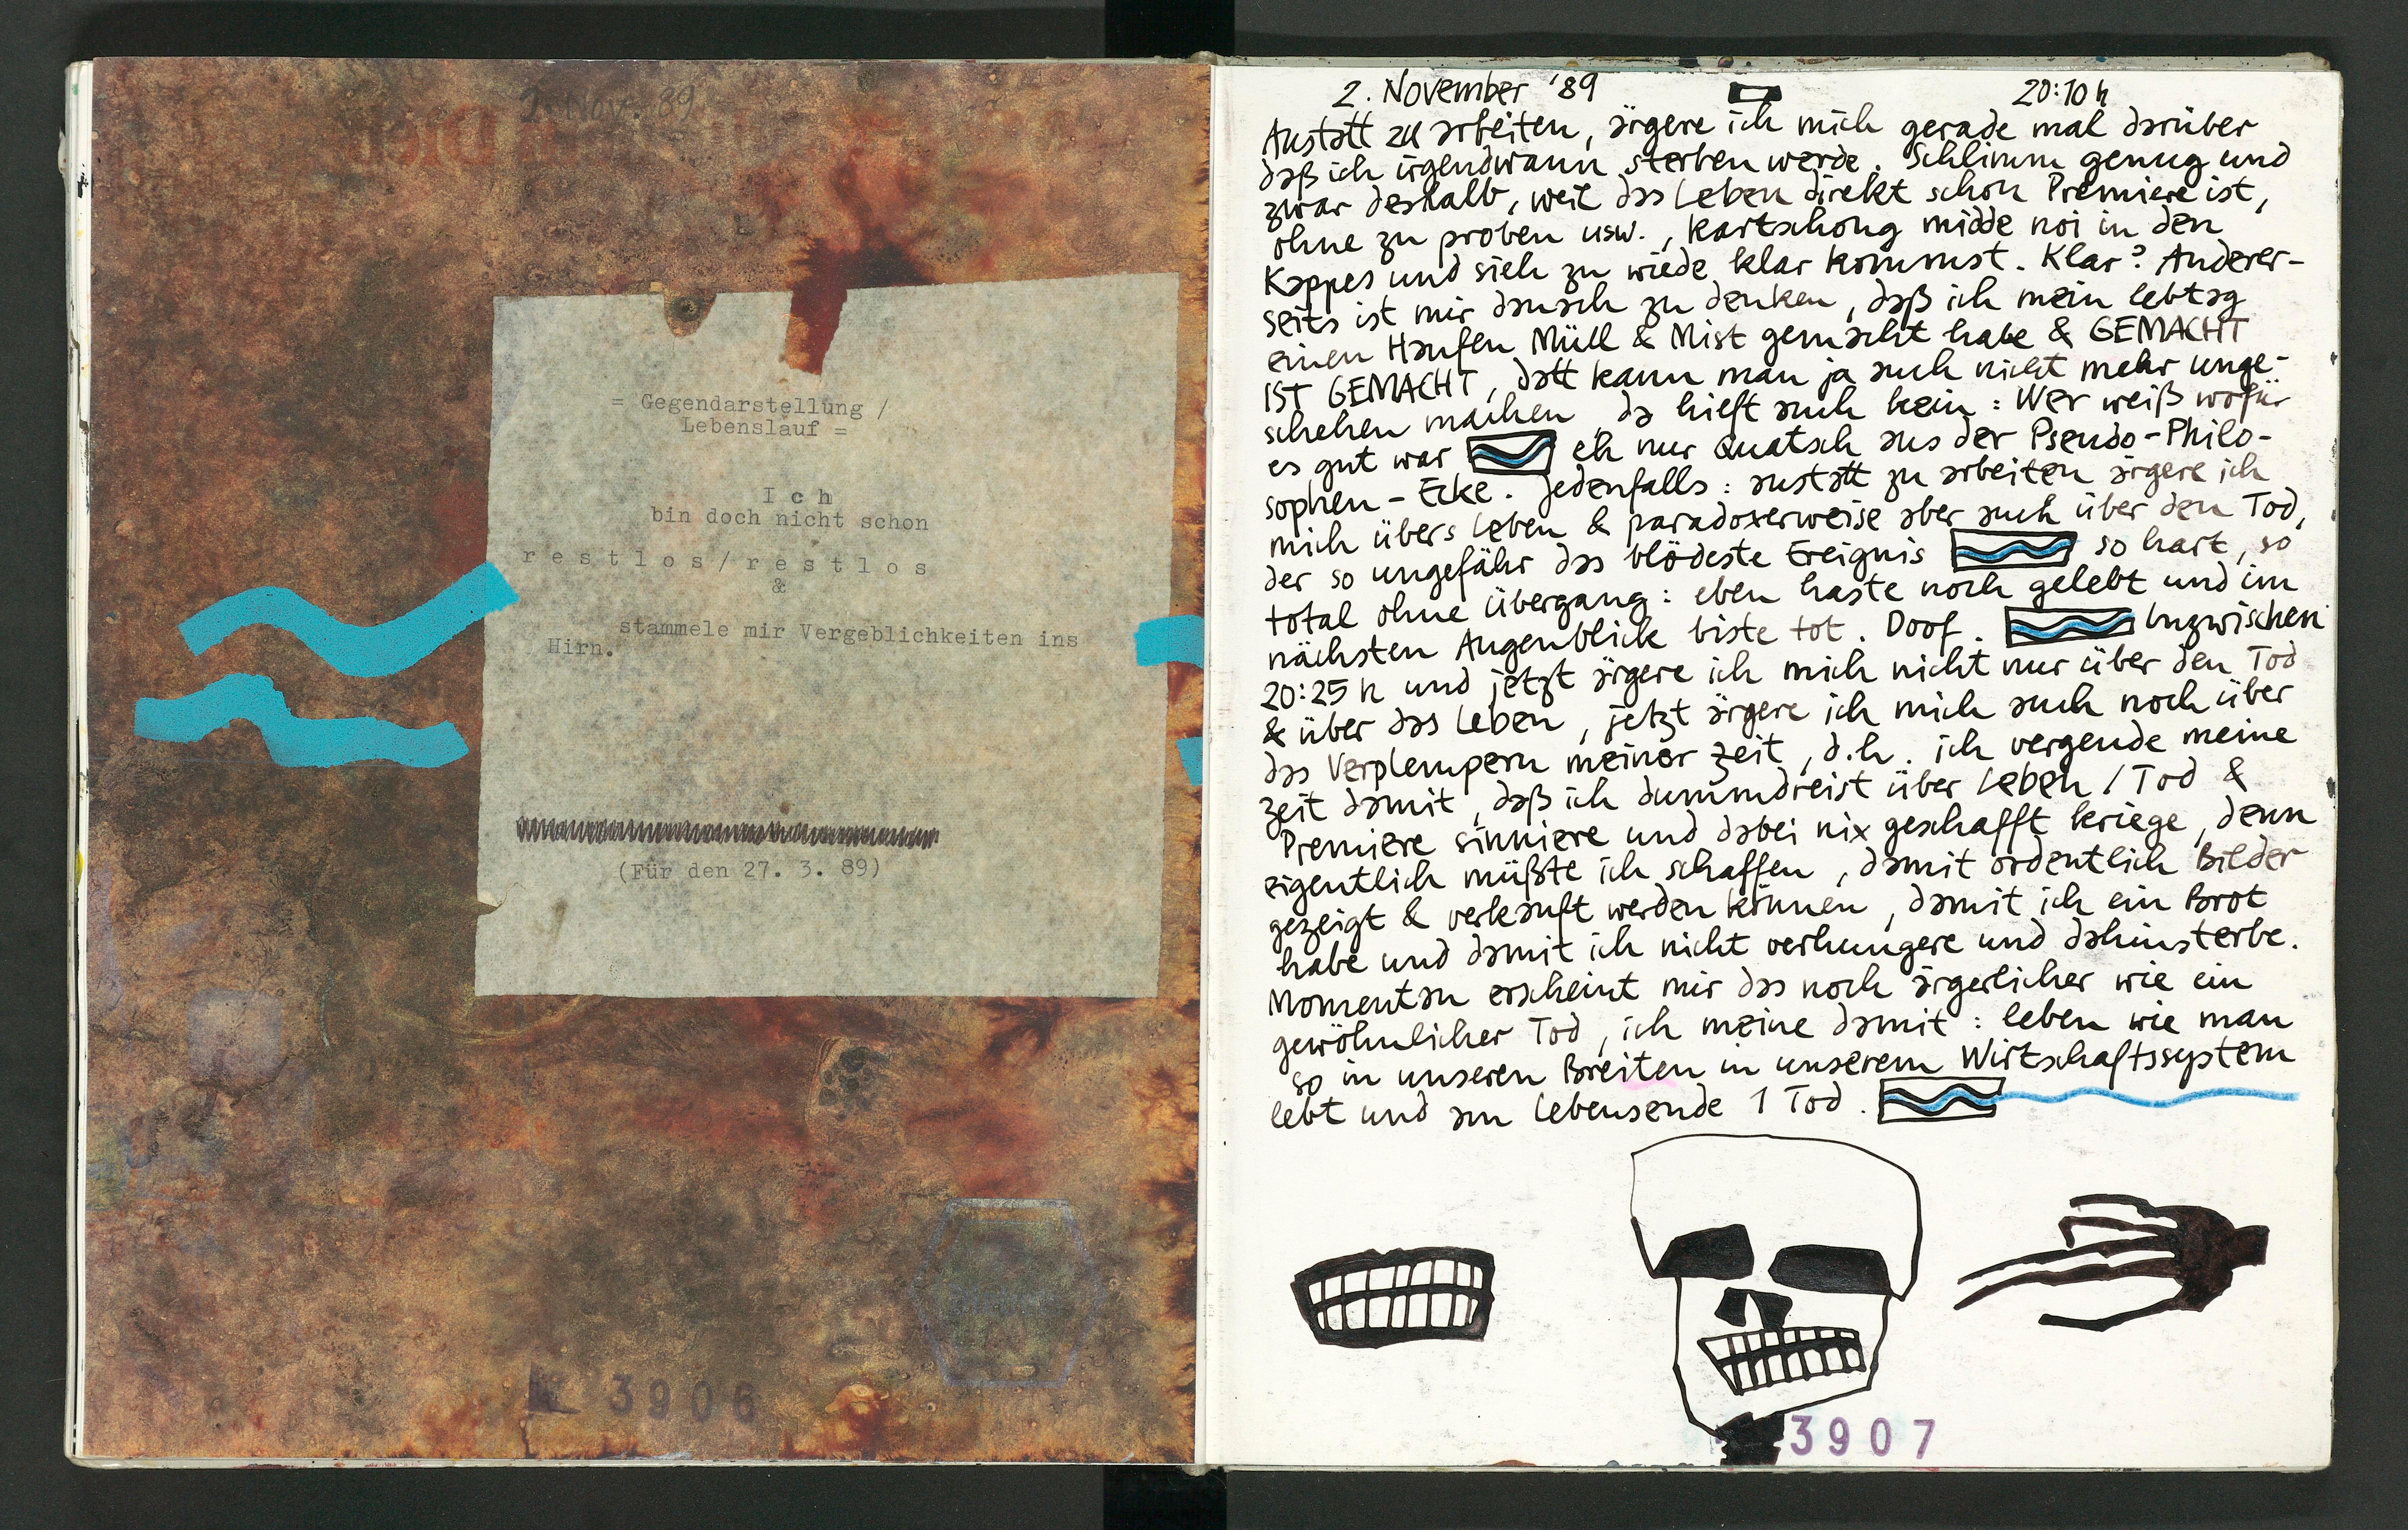 2. Nov. 89
= Gegendarstellung /
Lebenslauf =
I c h
bin doch nicht schon
r e s t l o s / r e s t l o s
&
stammele mir Vergeblichkeiten ins
Hirn.
(Für den 27. 3. 89)
3906
2. November '89 20:10 h
Anstatt zu arbeiten, ärgere ich mich gerade mal darüber
daß ich irgendwann sterben werde. Schlimm genug und
zwar deshalb, weil das Leben direkt schon Premiere ist,
ohne zu proben usw., kartschong midde noi in den
Kappes und sieh zu wiede klar kommst. Klar? Anderer-
seits ist mir danach zu denken, daß ich mein Lebtag
einen Haufen Müll & Mist gemacht habe & GEMACHT
IST GEMACHT, datt kann man ja auch nicht mehr unge-
schehen machen, da hilft auch kein: Wer weiß wofür
es gut war eh nur Quatsch aus der Pseudo-Philo-
sophen-Ecke. Jedenfalls: anstatt zu arbeiten ärgere ich
mich übers Leben & paradoxerweise aber auch über den Tod,
der so ungefähr das blödeste Ereignis so hart, so
total ohne Übergang: eben haste noch gelebt und im
nächsten Augenblick biste tot. Doof. Inzwischen
20:25 h und jetzt ärgere ich mich nicht nur über den Tod
& über das Leben, jetzt ärgere ich mich auch noch über
das Verplempern meiner Zeit, d.h. ich vergeude meine
Zeit damit, daß ich dummdreist über Leben / Tod &
Premiere sinniere und dabei nix geschafft kriege, denn
eigentlich müßte ich schaffen, damit ordentlich Bilder
gezeigt & verkauft werden können, damit ich ein Brot
habe und damit ich nicht verhungere und dahinsterbe.
Momentan erscheint mir das noch ärgerlicher wie ein
gewöhnlicher Tod, ich meine damit: leben wie man
so in unseren Breiten in unserem Wirtschaftssystem
lebt und am Lebensende 1 Tod.
3907